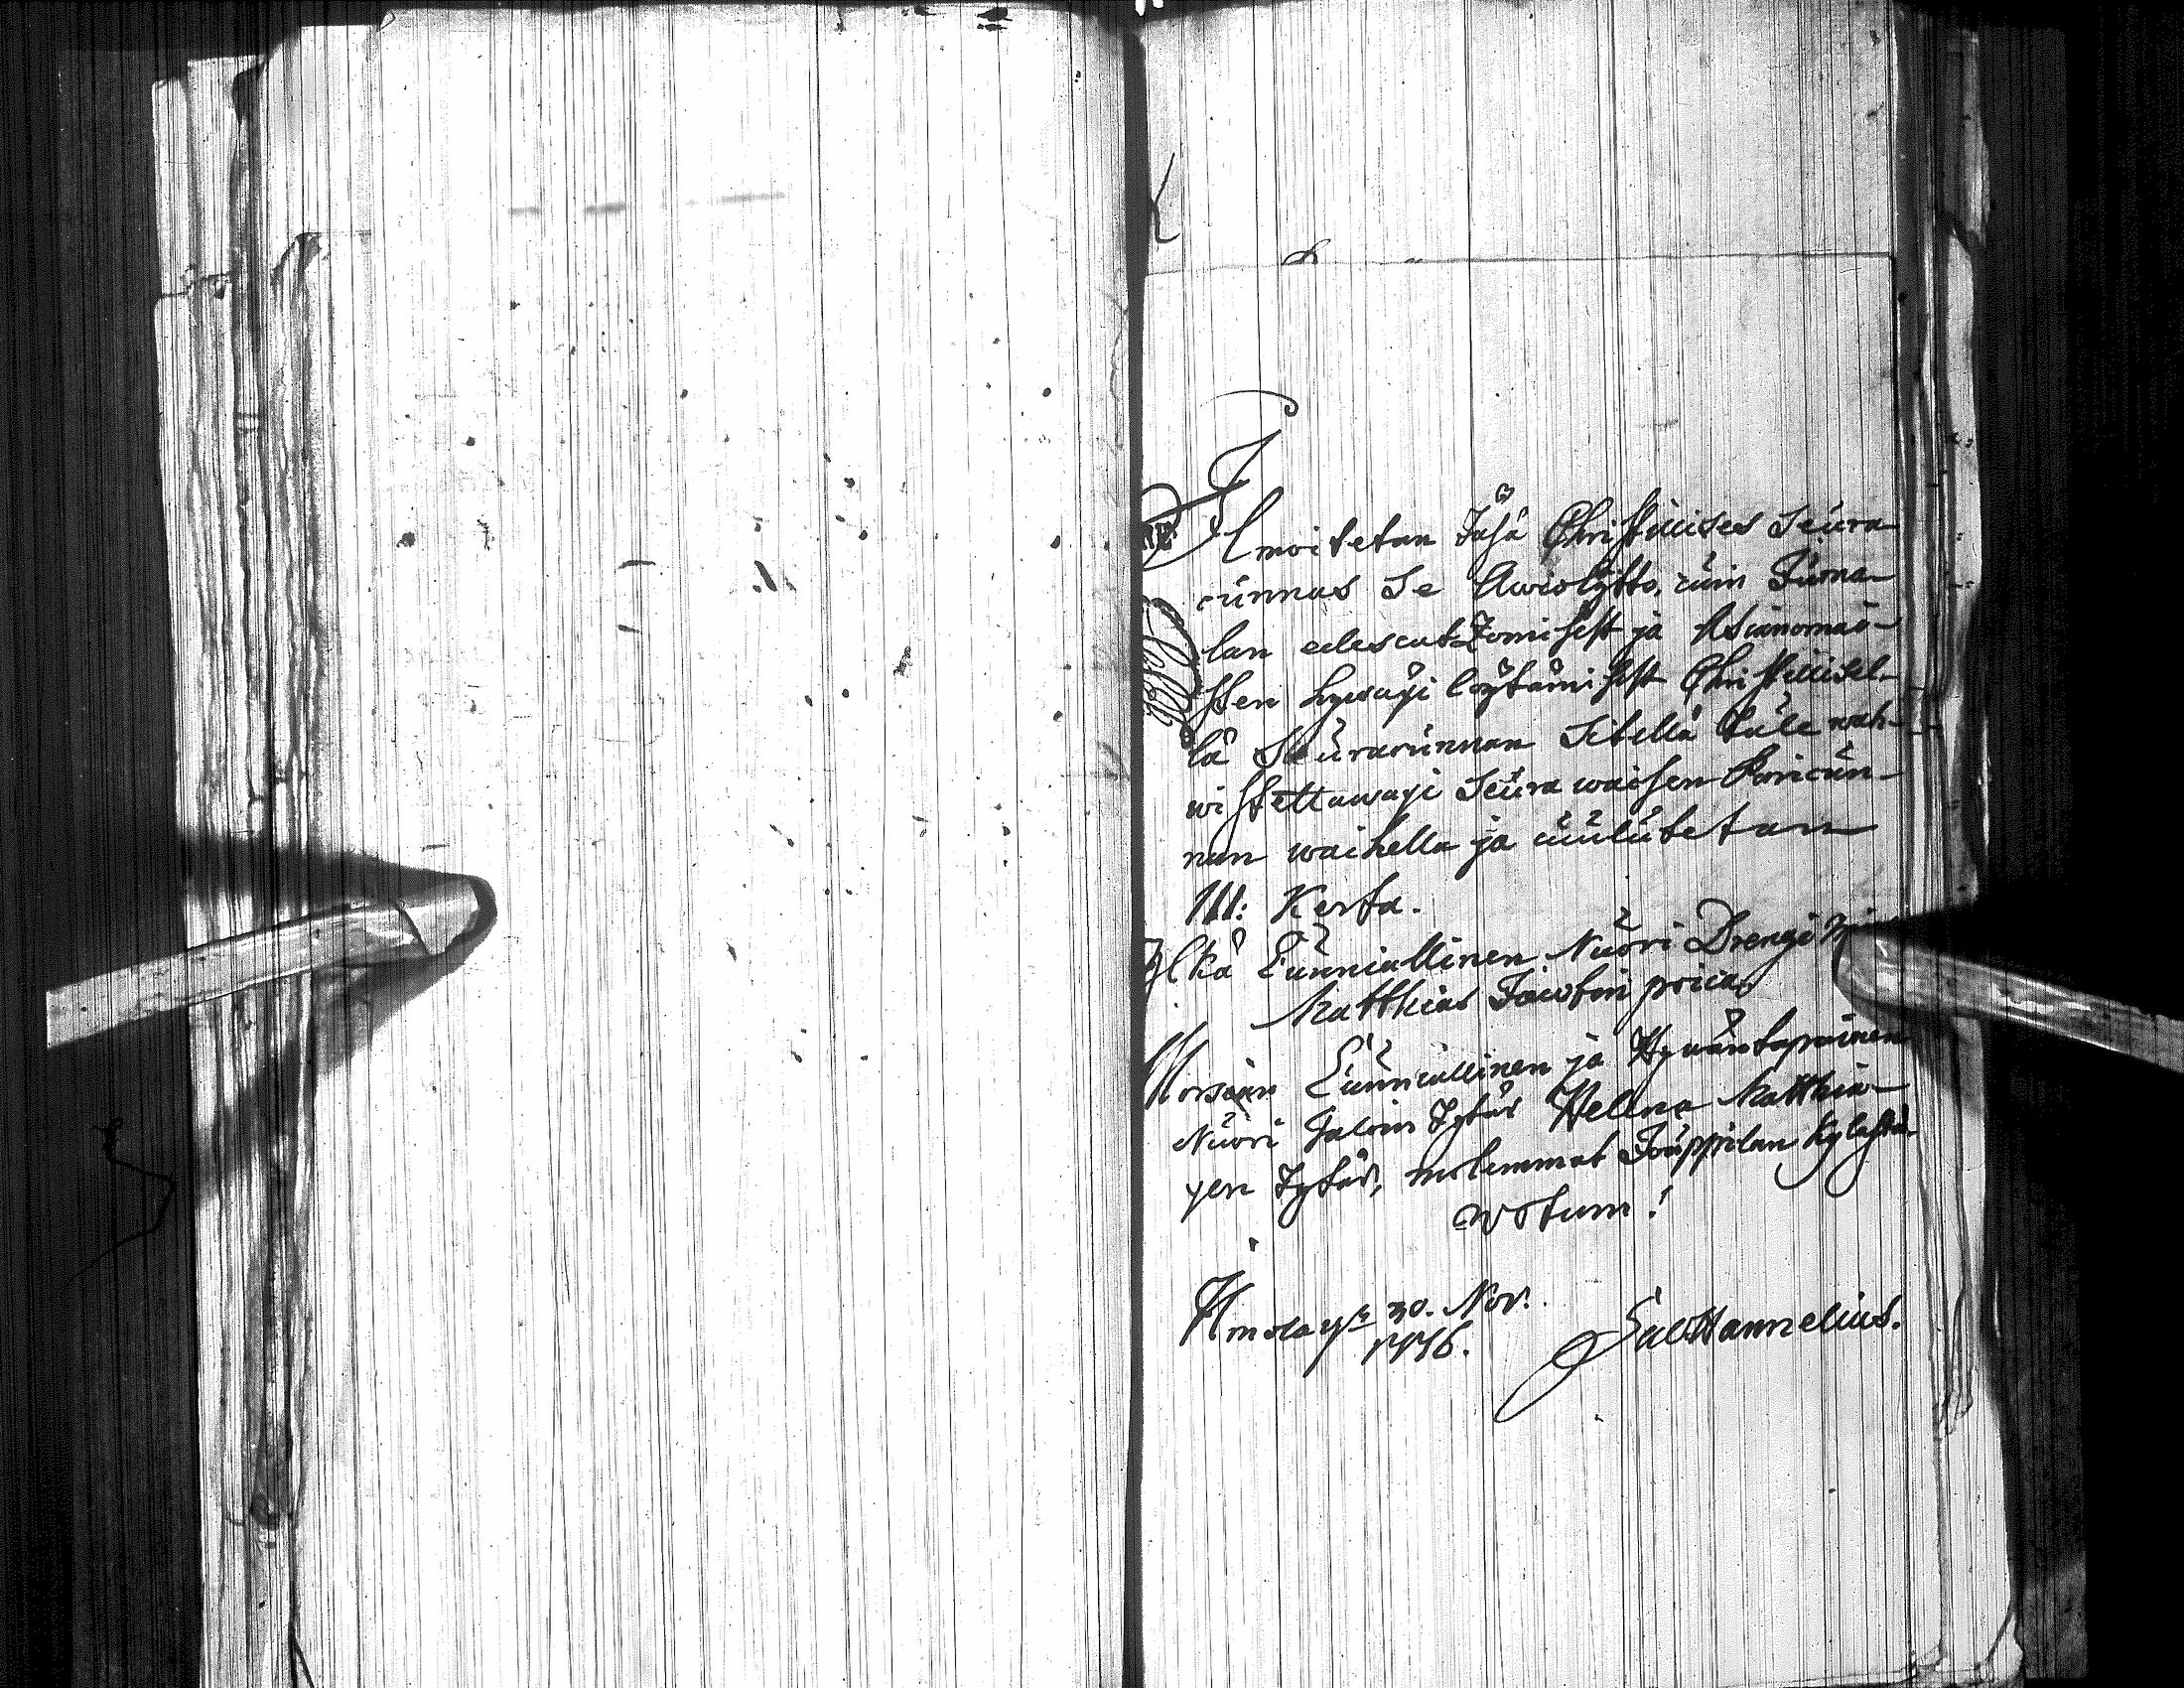 Ilmoitetan Täsä Christillises Seura
cunnas Se Awioliitto, cuin Juma-
lan edescatzomisest ja Asianomais-
sten hywäxi löytämisest Christillisel-
lä Seuracunnan Sitellä tule wah-
wistettawaxi Seura waisen Paricun-
nan waihella ja cuulutetan
III: Kerta.
Ylkä Cunniallinen Nuori Drengi
Matthias Jacobin poica,
Morsian Cunniallinen ja Hywäntapainen
Nuori Talon Tytär Helena Matthia-
xen Tytär, molemmat Jouppilan kylästä.
Votum!
30. Nov.
1776.
Hannelius.